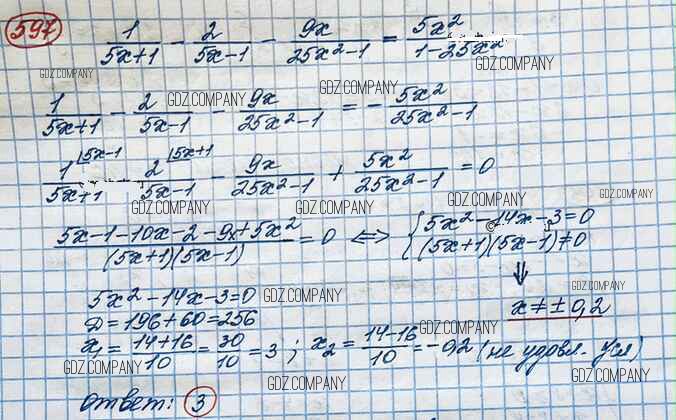 597
1/(5x+1) - 2/(5x-1) - 9x/(25x²-1) = 5x²/(1-25x²)
GDZ.COMPANY GDZ.COMPANY GDZ.COMPANY
1/(5x+1) - 2/(5x-1) - 9x/(25x²-1) = - 5x²/(25x²-1)
GDZ.COMPANY GDZ.COMPANY
1⌊5x-1/(5x+1) - 2⌊5x+1/(5x-1) - 9x/(25x²-1) + 5x²/(25x²-1) = 0
GDZ.COMPANY GDZ.COMPANY GDZ.COMPANY GDZ.COMPANY
(5x-1-10x-2-9x+5x²)/((5x+1)(5x-1)) = 0 <=> { 5x²-14x-3=0
(5x+1)(5x-1)≠0
⇓
5x²-14x-3=0 GDZ.COMPANY GDZ.COMPANY
x ≠ ± 0,2
D=196+60=256
GDZ.COMPANY
x₁ = (14+16)/10 = 30/10 = 3; x₂ = (14-16)/10 = -0,2 (не удовл. усл)
GDZ.COMPANY GDZ.COMPANY GDZ.COMPANY
GDZ.COMPANY
ответ: 3